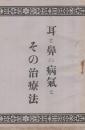 耳と鼻の病氣と
その治療法